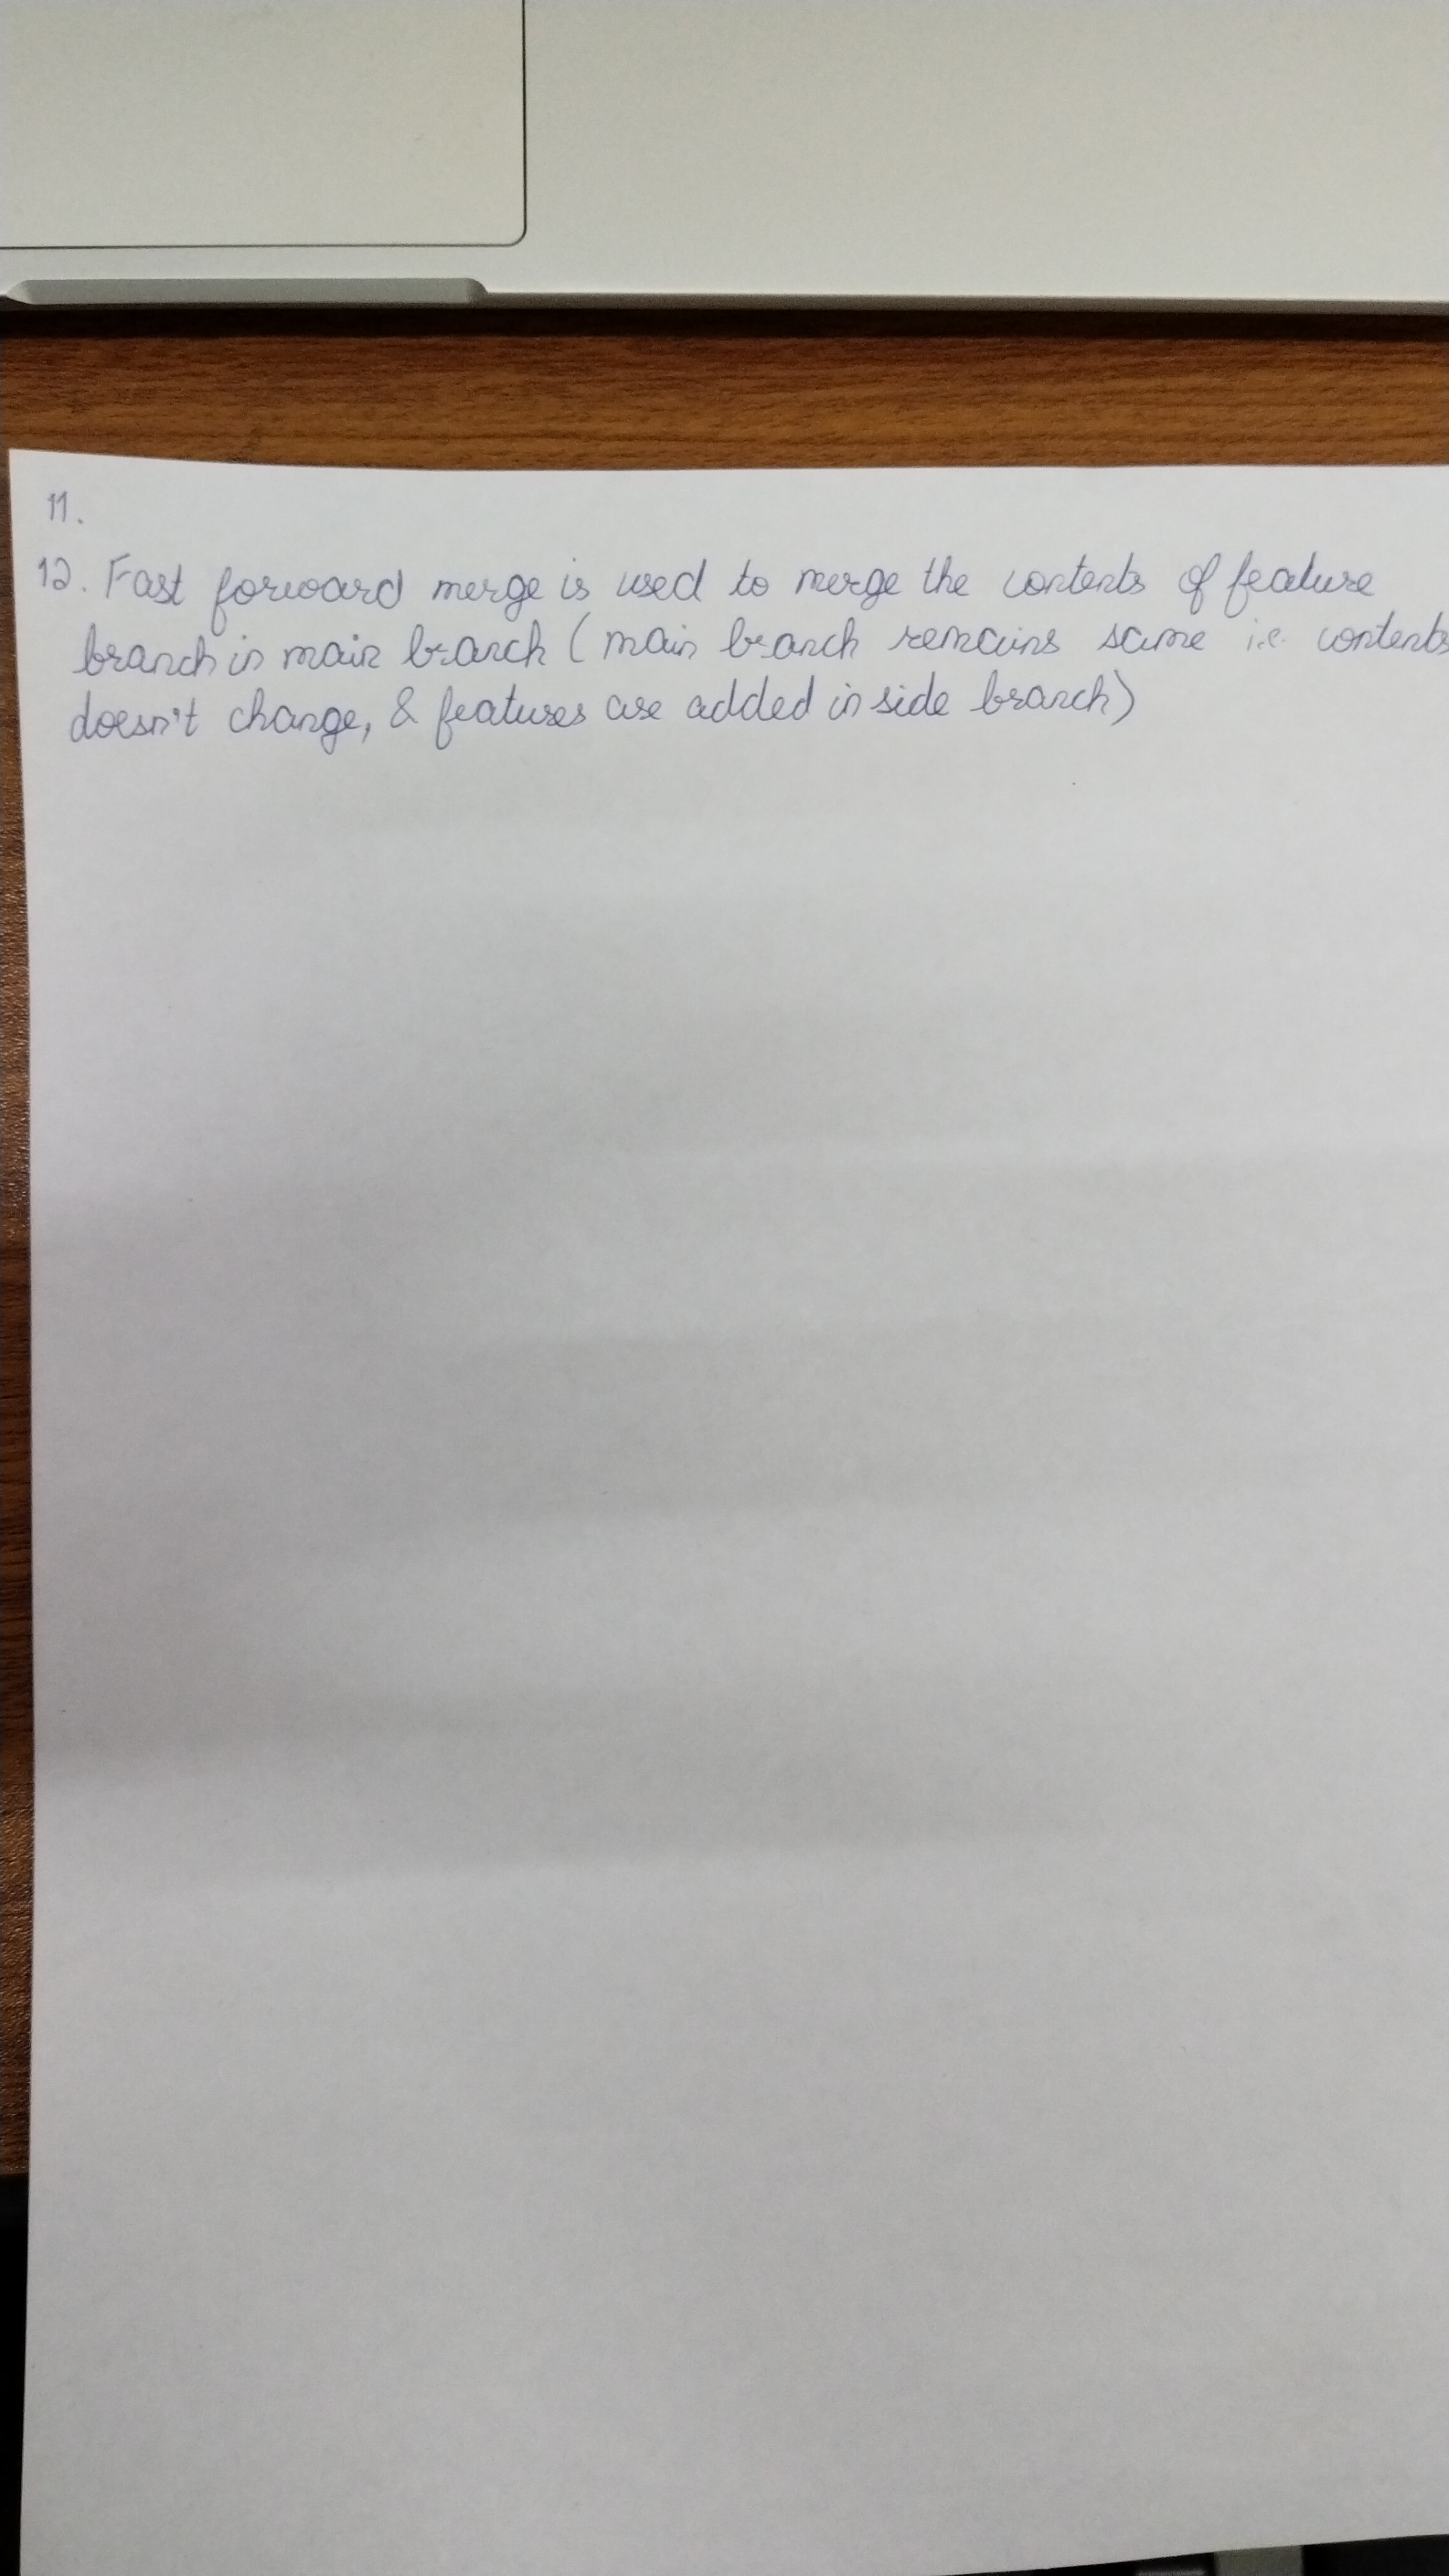 11.
12. Fast forward merge is used to merge the contents of feature
branch in main branch (main branch remains same i.e. contents
doesn't change, & features are added in side branch)